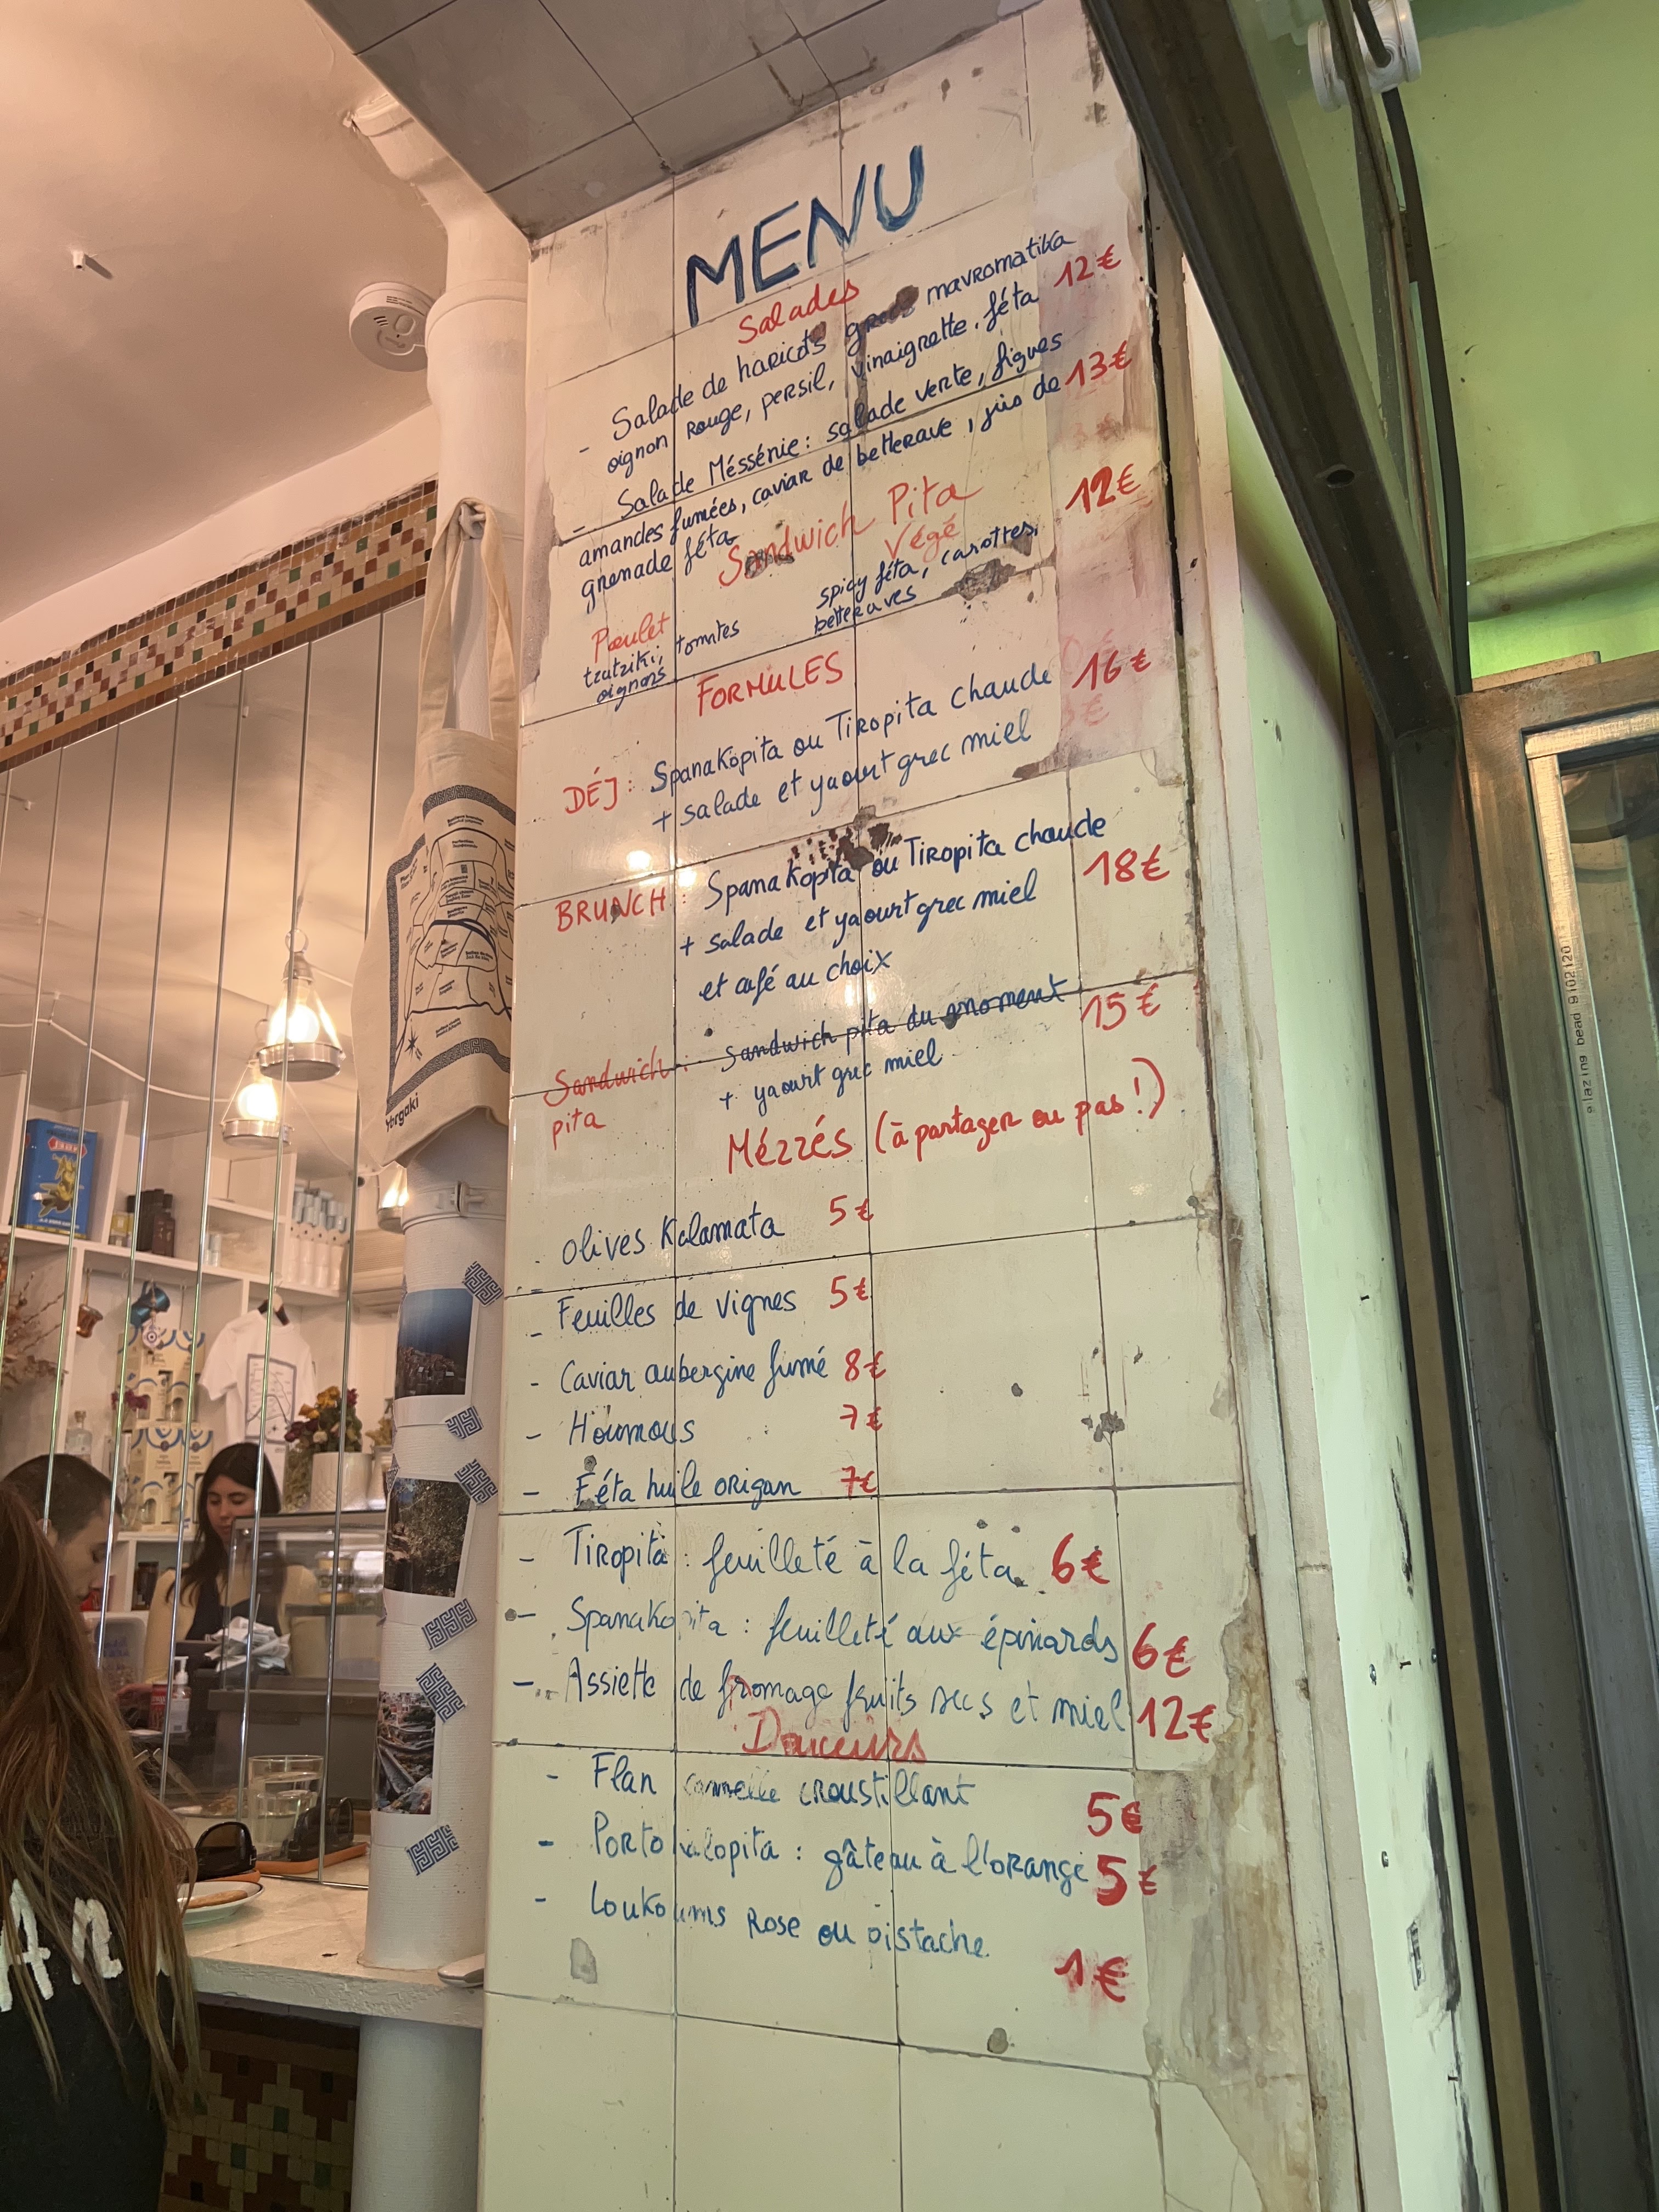 MENU
Salades
- Salade de haricots grecs mavromatika 12€
oignon rouge, persil, vinaigrette, féta
- Salade Méssénie: salade verte, figues 13€
amandes fumées, caviar de betterave, jus de
grenade féta
Sandwich Pita 12€
Poulet
tzatziki, tomates
oignons
Végé
spicy féta, carottes,
betteraves
FORMULES
DÉJ: Spanakopita ou Tiropita chaude 16€
+ salade et yaourt grec miel
BRUNCH: Spanakopita ou Tiropita chaude 18€
+ salade et yaourt grec miel
et café au choix
Sandwich pita: sandwich pita du moment 15€
+ yaourt grec miel
Mézzés (à partager ou pas!)
- olives Kalamata 5€
- Feuilles de vignes 5€
- Caviar aubergine fumé 8€
- Houmous 7€
- Féta huile origan 7€
- Tiropita: feuilleté à la féta 6€
- Spanakopita: feuilleté aux épinards 6€
- Assiette de fromage fruits secs et miel 12€
Douceurs
- Flan cannelle croustillant 5€
- Portokalopita: gâteau à l'orange 5€
- Loukoums Rose ou pistache 1€
glazing bead 9102120